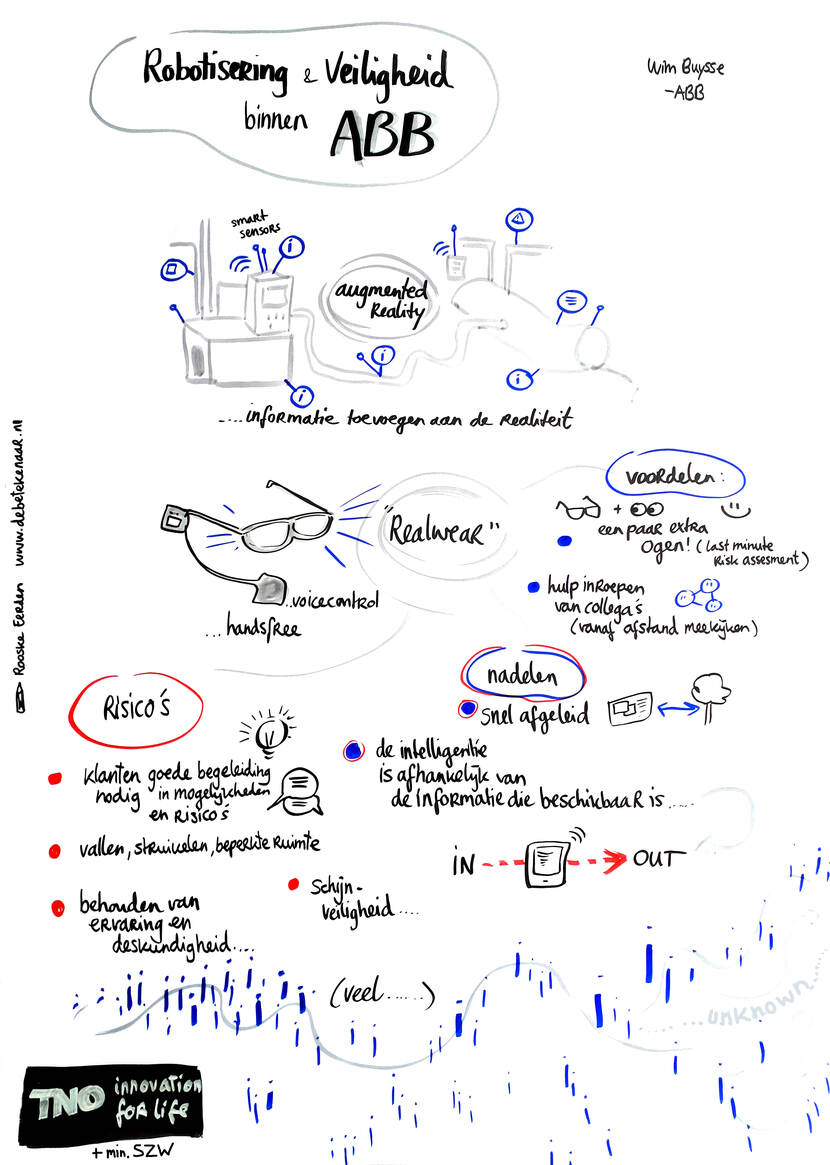 Robotisering & Veiligheid
binnen ABB
Wim Buysse
-ABB
smart
sensors
augmented
Reality
....informatie toevoegen aan de realiteit
Rooske Eerden www.debetekenaar.nl
"Realwear"
...voicecontrol
...handsfree
voordelen:
+
een paar extra
ogen! (last minute
risk assesment)
hulp inroepen
van collega's
(vanaf afstand meekijken)
nadelen
snel afgeleid
de intelligentie
is afhankelijk van
de informatie die beschikbaar is.....
IN OUT
Risico's
klanten goede begeleiding
nodig in mogelijkheden
en risico's
vallen, struikelen, beperkte ruimte
behouden van
ervaring en
deskundigheid....
Schijn-
veiligheid....
(veel.....)
...unknown....
TNO innovation
for life
+ min. SZW